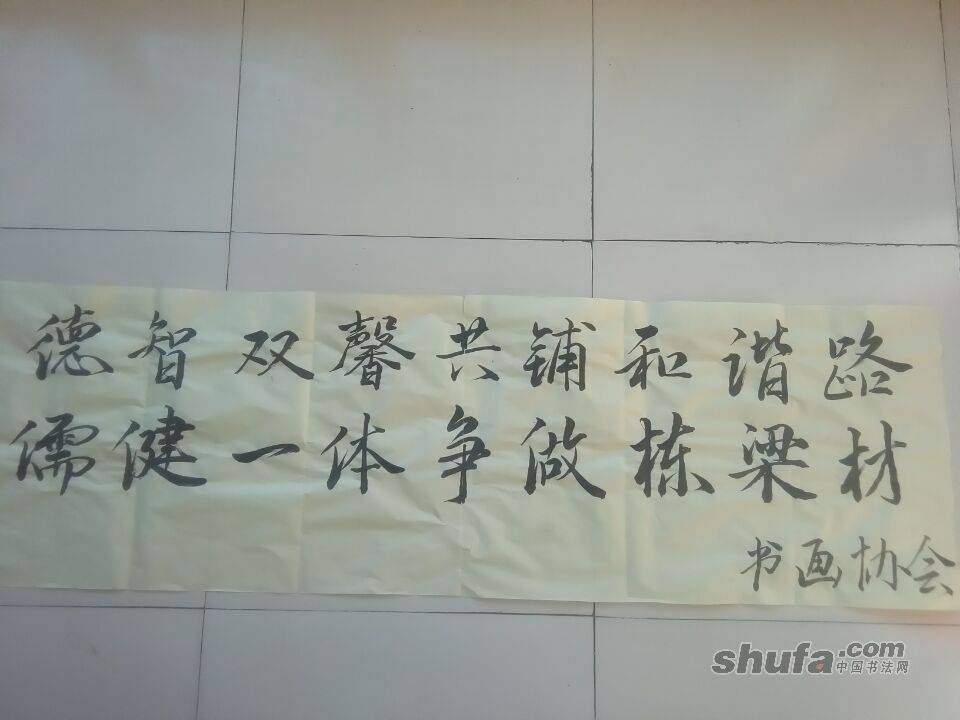 德智双馨共铺和谐路
儒健一体争做栋梁材
书画协会
shufa.com
中国书法网